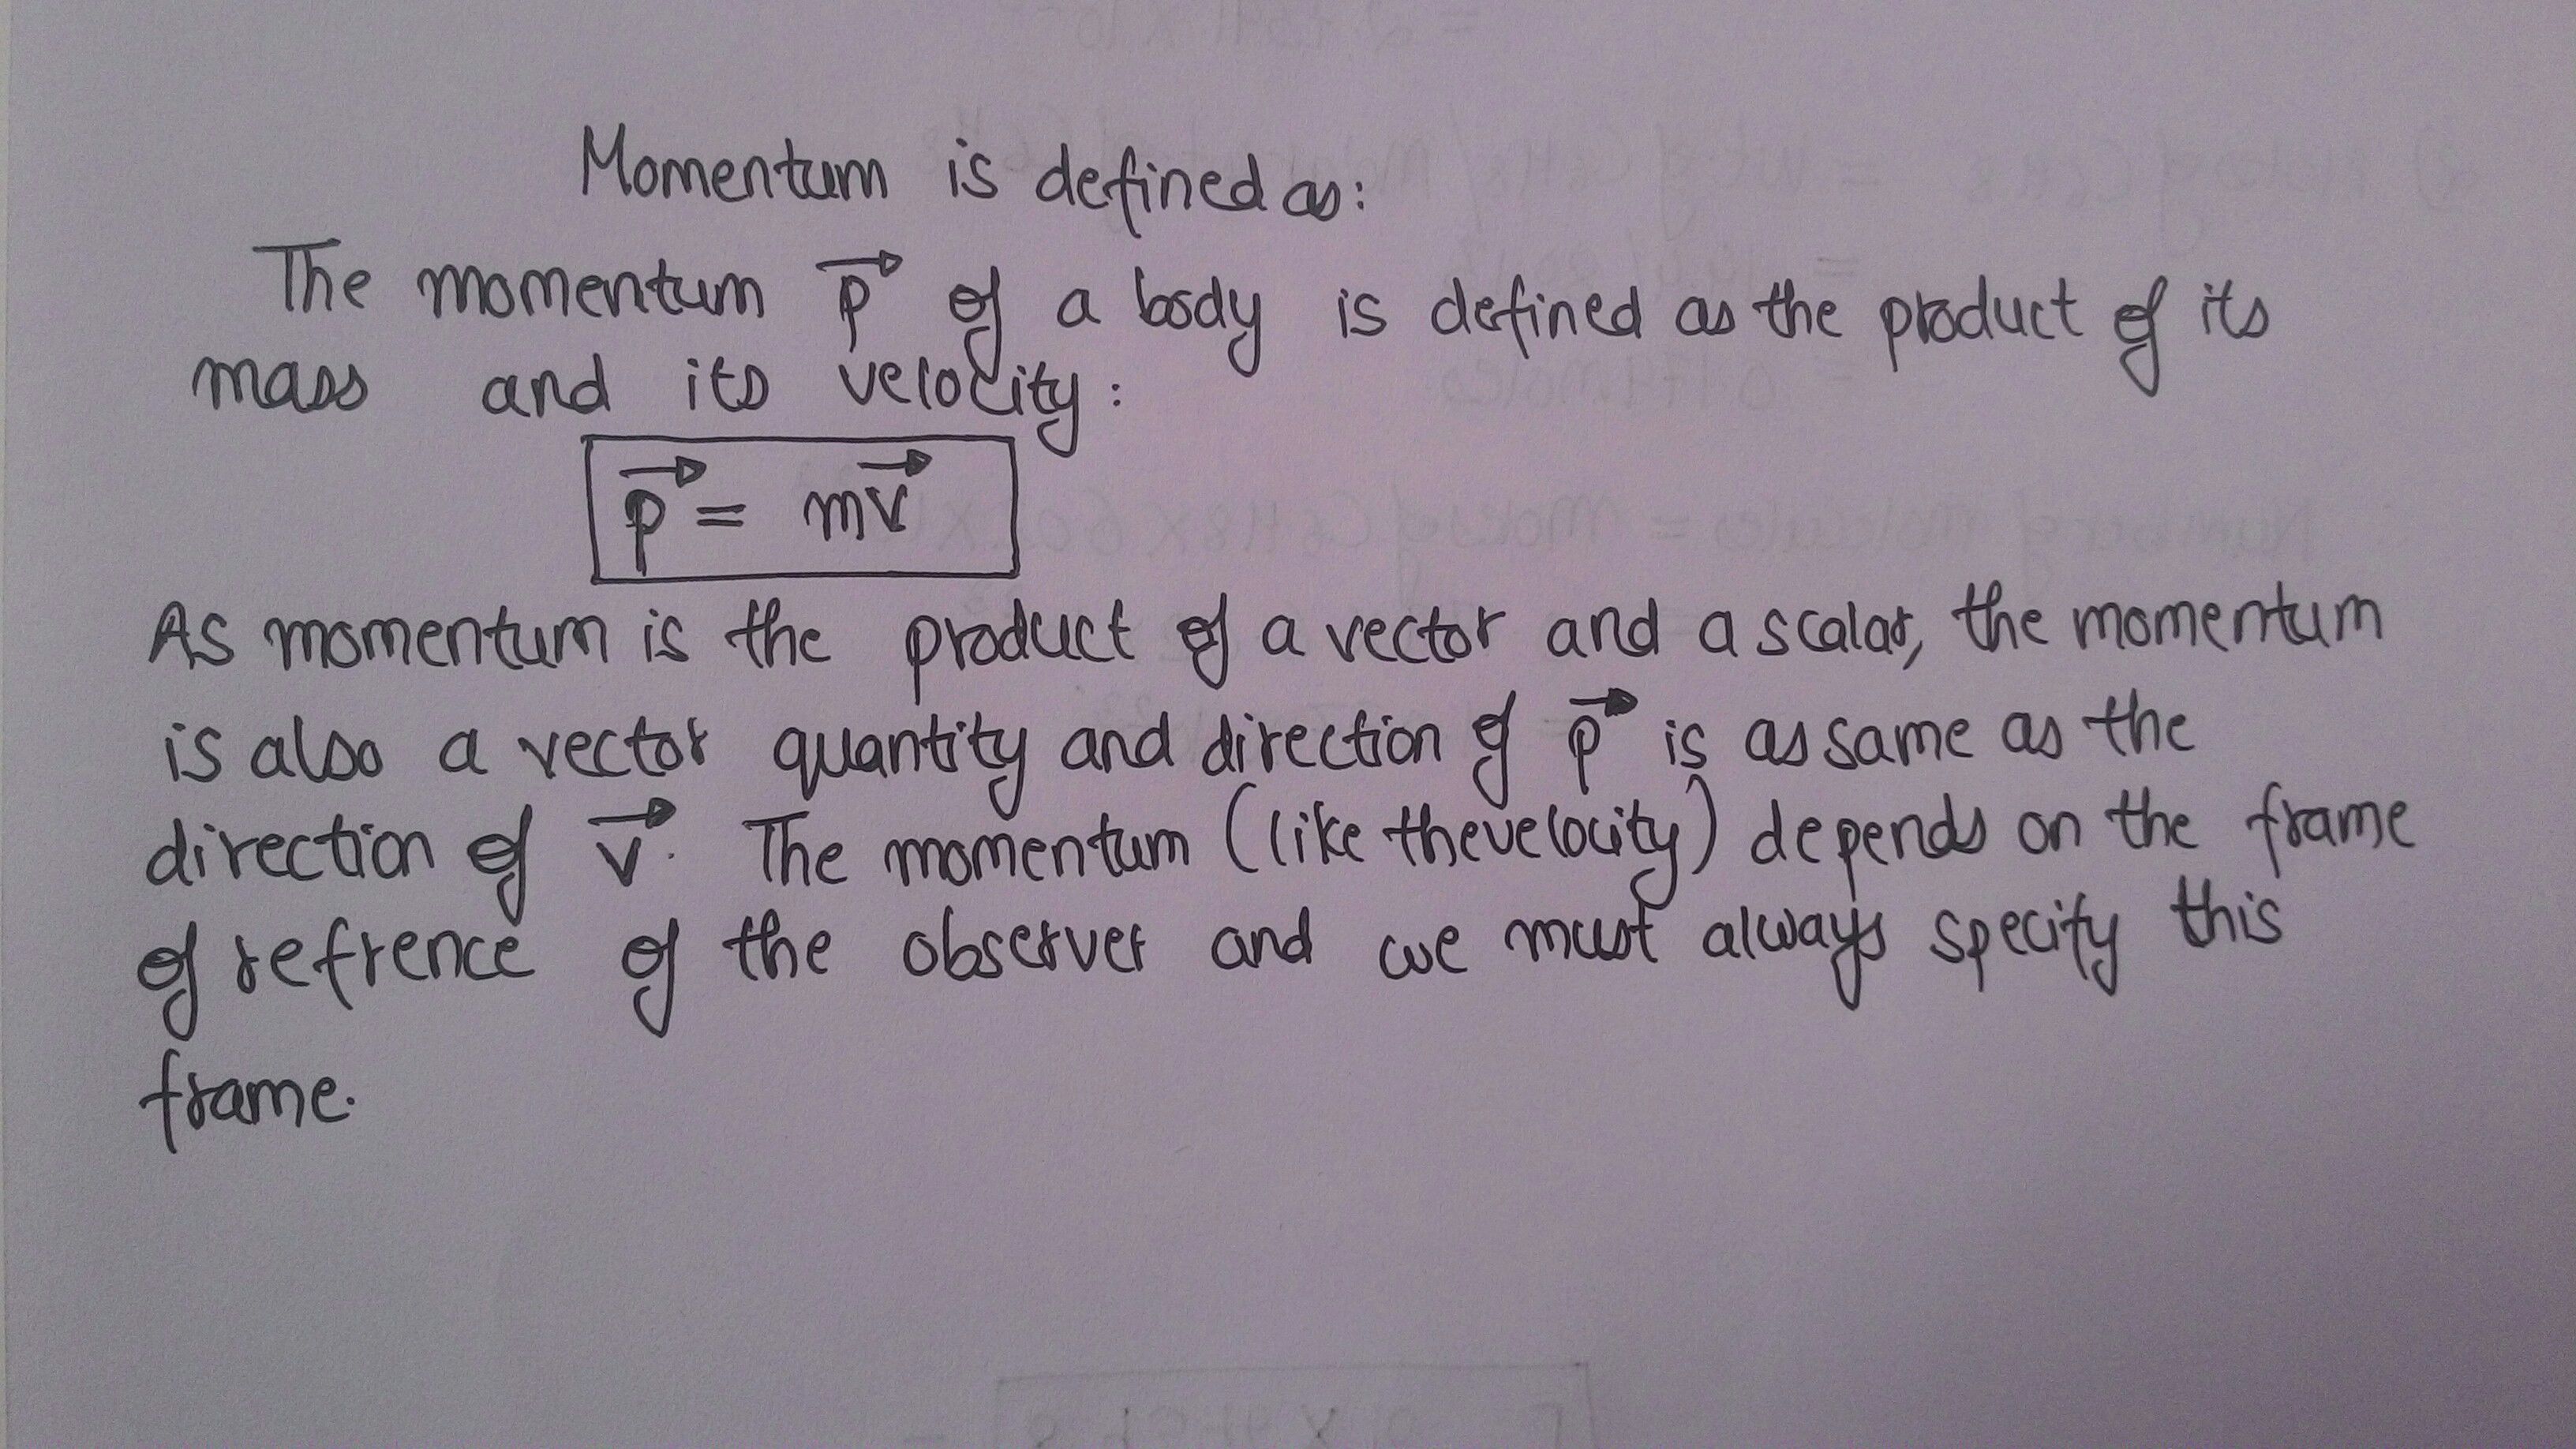 Momentum is defined as:
The momentum p⃗ of a body is defined as the product of its
mass and its velocity:
p⃗ = mv⃗
As momentum is the product of a vector and a scalar, the momentum
is also a vector quantity and direction of p⃗ is as same as the
direction of v⃗. The momentum (like the velocity) depends on the frame
of refrence of the observer and we must always specify this
frame.